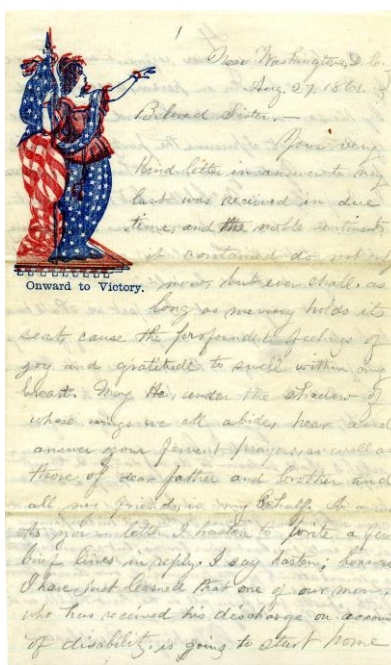 1
Near Washington, D.C.
Aug. 27, 1861.
Beloved Sister.—
Your very
kind letter in answer to my
last was received in due
time, and the noble sentiments
it contained do not
now, but ever shall, as
Onward to Victory.
long as memory holds its
seat, cause the profoundest feelings of
joy and gratitude to swell within my
breast. May He, under the shadow of
whose wings we all abide, hear and
answer your fervent prayers, as well as
those, of dear father and brother and
all my friends, in my behalf.
to your letter I hasten to write a few
brief lines in reply. I say hasten; because
I have just learned that one of our
who has received his discharge on account
of disability, is going to start home